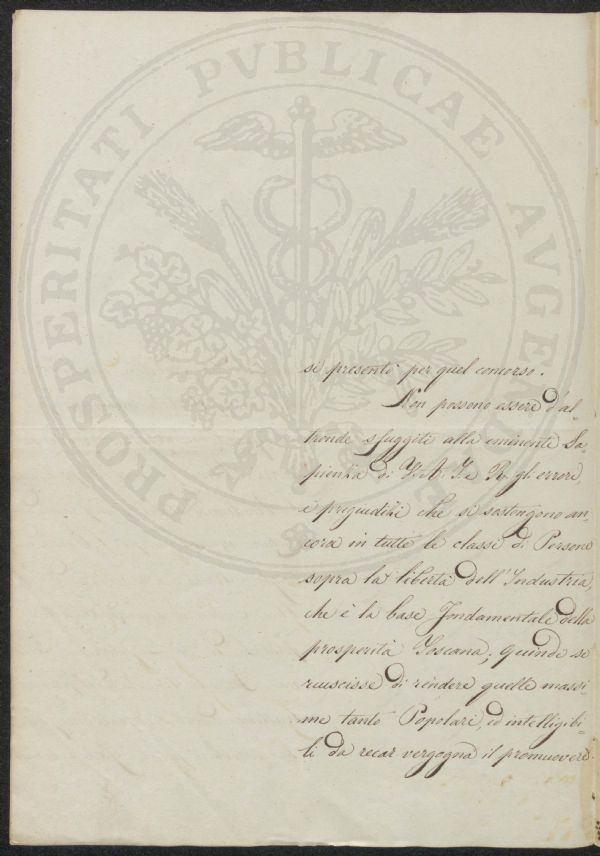 PROSPERITATI PVBLICAE AVGENDAE
si presentò per quel concorso.
Non possono essere d'al-
tronde sfuggiti alla eminente Sa-
pienza di V. A. I. e R. gli errori,
i pregiudizi che si sostengono an-
cora in tutte le classi di Persone
sopra la libertà dell'Industria,
che è la base fondamentale della
prosperità Toscana; quindi se
riuscisse di rendere quelle massi-
me tanto Popolari, ed intelligibi-
li da recar vergogna il promuovere